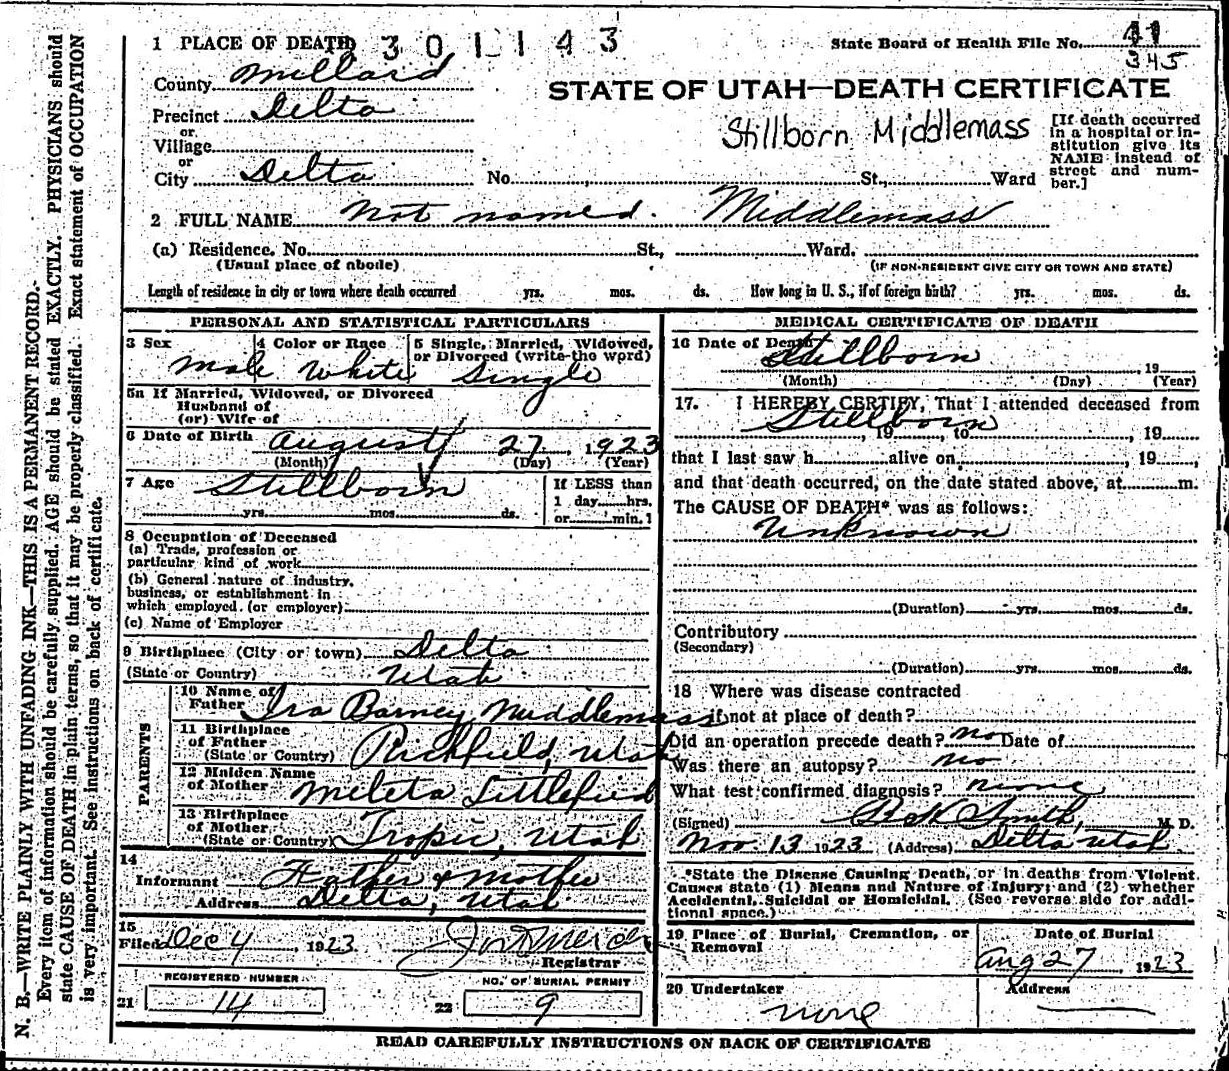 1 PLACE OF DEATH 3 0 1 1 4 3
State Board of Health File No. 41
345
County Millard
STATE OF UTAH—DEATH CERTIFICATE
Precinct Delta
or
Village
or
City Delta No. St., Ward
Stillborn Middlemass
[If death occurred
in a hospital or in-
stitution give its
NAME instead of
street and num-
ber.]
2 FULL NAME Not named. Middlemass
(a) Residence. No. St., Ward.
(Usual place of abode) (IF NON-RESIDENT GIVE CITY OR TOWN AND STATE)
Length of residence in city or town where death occurred yrs. mos. ds. How long in U. S., if of foreign birth? yrs. mos. ds.
PERSONAL AND STATISTICAL PARTICULARS
3 Sex 4 Color or Race 5 Single, Married, Widowed,
or Divorced (write the word)
Male White Single
5a If Married, Widowed, or Divorced
Husband of
(or) Wife of
6 Date of Birth August 27, 1923
(Month) (Day) (Year)
7 Age Stillborn
yrs. mos. ds.
If LESS than
1 day hrs.
or min.?
8 Occupation of Deceased
(a) Trade, profession or
particular kind of work
(b) General nature of industry,
business, or establishment in
which employed (or employer)
(c) Name of Employer
9 Birthplace (City or town) Delta
(State or Country) Utah
PARENTS
10 Name of
Father Ira Barney Middlemass
11 Birthplace
of Father
(State or Country) Richfield, Utah
12 Maiden Name
of Mother Mileta Littlefield
13 Birthplace
of Mother
(State or Country) Tropic, Utah
14
Informant Father & Mother
Address Delta, Utah
15
Filed Dec 4, 1923
Registrar
REGISTERED NUMBER
21 14
NO. OF BURIAL PERMIT
22 9
MEDICAL CERTIFICATE OF DEATH
16 Date of Death Stillborn 19
(Month) (Day) (Year)
17. I HEREBY CERTIFY, That I attended deceased from
Stillborn, 19, to, 19
that I last saw h alive on, 19,
and that death occurred, on the date stated above, at m.
The CAUSE OF DEATH* was as follows:
Unknown
(Duration) yrs. mos. ds.
Contributory
(Secondary)
(Duration) yrs. mos. ds.
18 Where was disease contracted
if not at place of death?
Did an operation precede death? No Date of
Was there an autopsy? no
What test confirmed diagnosis? none
(Signed) Smith, M. D.
Nov. 13 1923 (Address) Delta Utah.
*State the Disease Causing Death, or in deaths from Violent
Causes state (1) Means and Nature of Injury; and (2) whether
Accidental, Suicidal or Homicidal. (See reverse side for addi-
tional space.)
19 Place of Burial, Cremation, or
Removal
Date of Burial
Aug 27, 1923
20 Undertaker
none
Address
READ CAREFULLY INSTRUCTIONS ON BACK OF CERTIFICATE
N. B.—WRITE PLAINLY WITH UNFADING INK—THIS IS A PERMANENT RECORD.
Every item of information should be carefully supplied. AGE should be stated EXACTLY. PHYSICIANS should
state CAUSE OF DEATH in plain terms, so that it may be properly classified. Exact statement of OCCUPATION
is very important. See instructions on back of certificate.